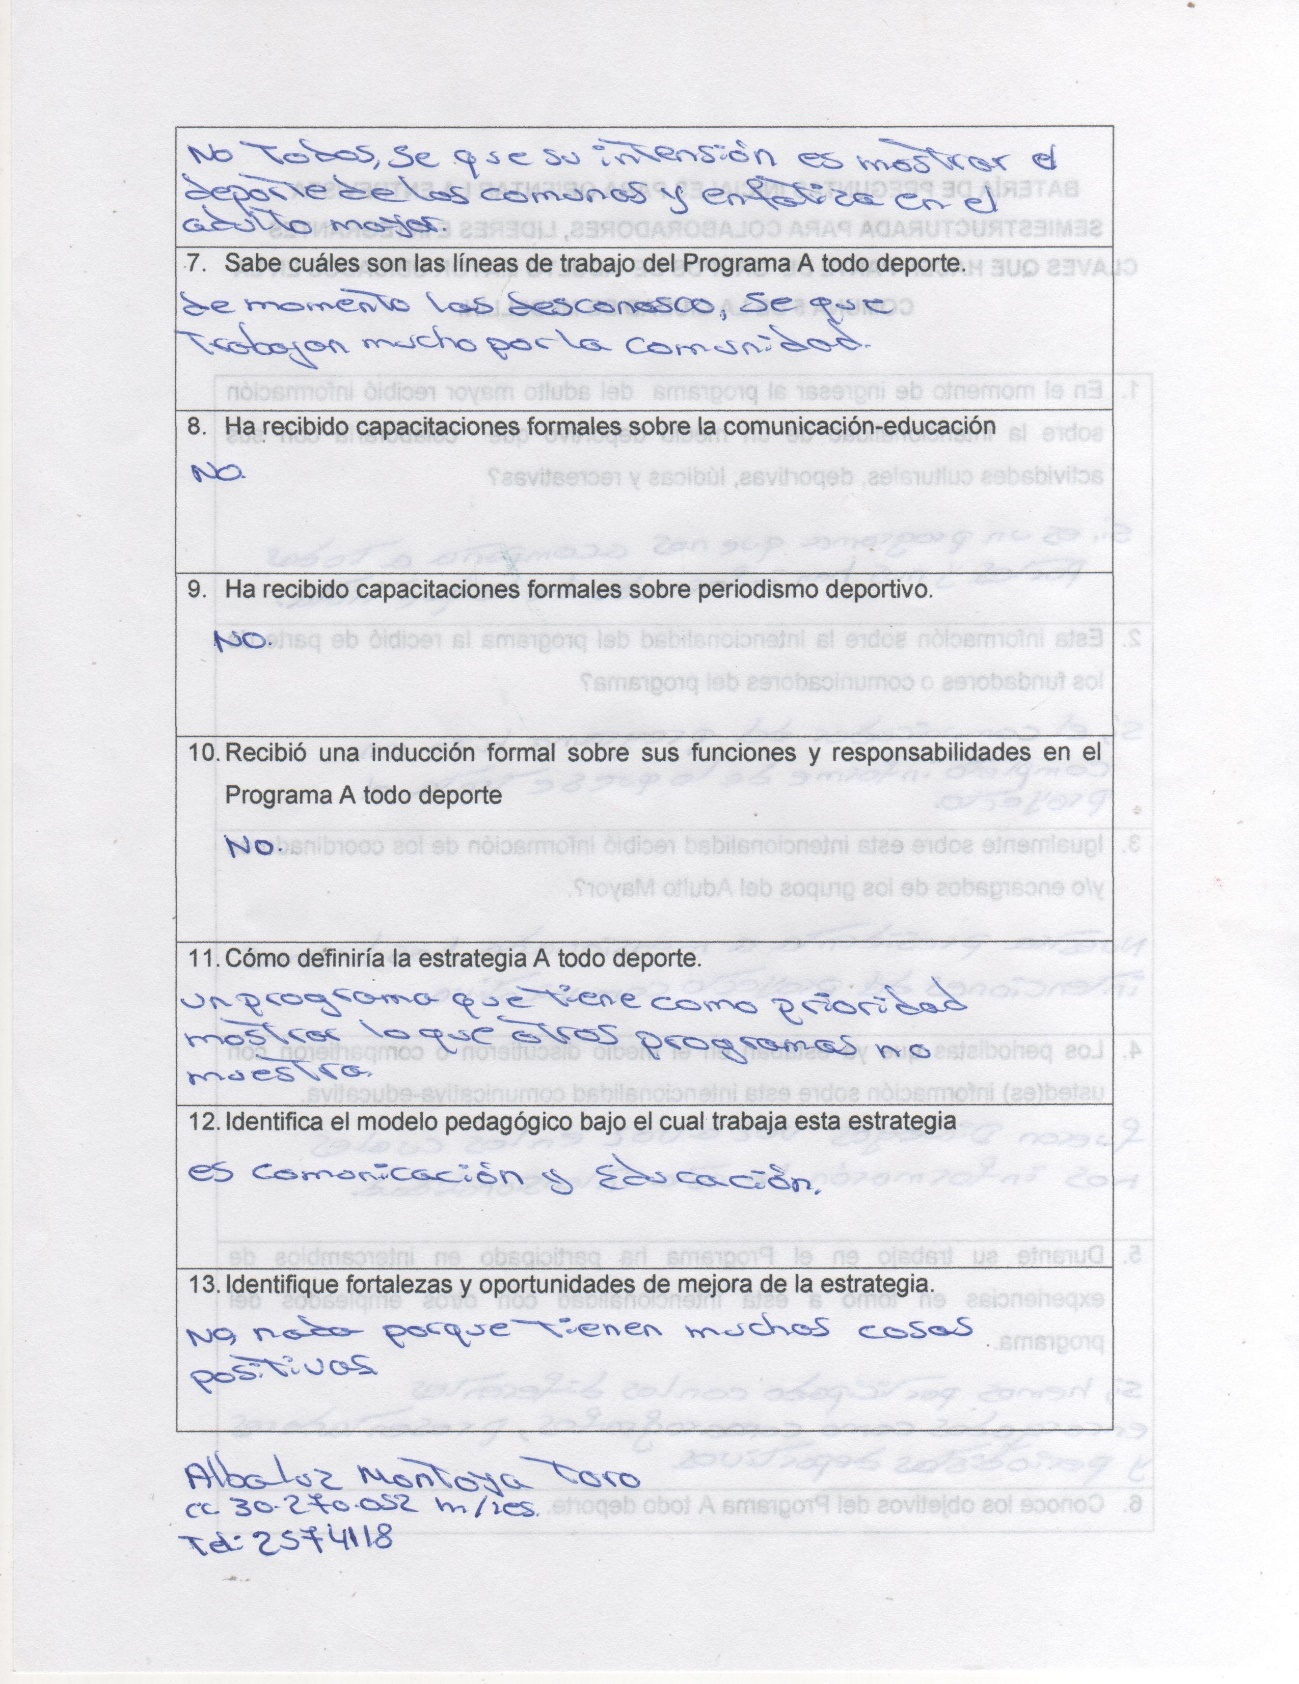 No Todos, Se que su intensión es mostrar el
deporte de las comunas y enfatiza en el
adulto mayor.
7. Sabe cuáles son las líneas de trabajo del Programa A todo deporte.
de momento las desconosco, Se que
Trabajan mucho por la comunidad.
8. Ha recibido capacitaciones formales sobre la comunicación-educación
NO.
9. Ha recibido capacitaciones formales sobre periodismo deportivo.
NO.
10. Recibió una inducción formal sobre sus funciones y responsabilidades en el
Programa A todo deporte
NO.
11. Cómo definiría la estrategia A todo deporte.
un programa que tiene como prioridad
mostrar lo que otros programas no
muestra.
12. Identifica el modelo pedagógico bajo el cual trabaja esta estrategia
es comunicación y Educación.
13. Identifique fortalezas y oportunidades de mejora de la estrategia.
No, nada porque tienen muchas cosas
positivas
Alba luz Montoya Toro
cc. 30.270.052 m/zes.
Tel: 2574118